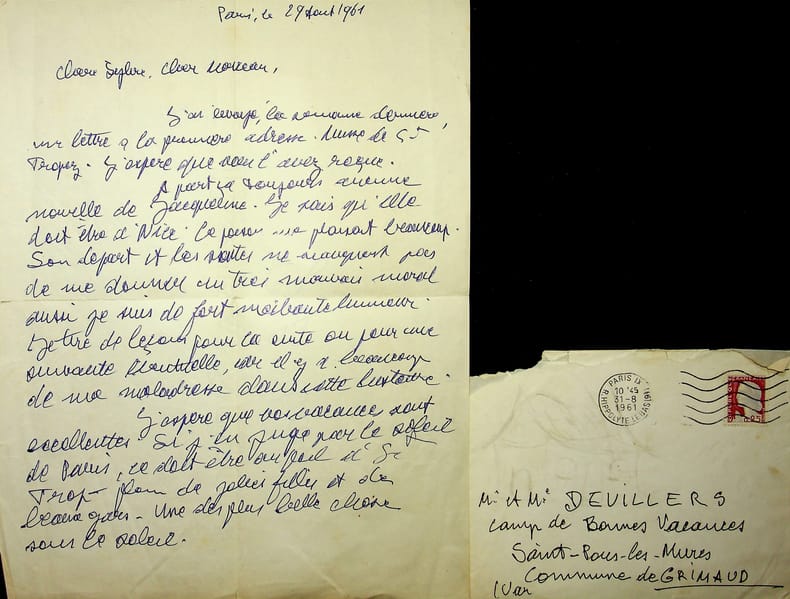 Paris, le 29 Aout 1961
Chère Sylvie, Cher
J'ai envoyé, la semaine dernière,
une lettre a la première adresse. Musée de St
Tropez. J'espère que vous l'avez reçue.
A part ça toujours aucune
nouvelle de Jacqueline. Je sais qu'elle
doit être à Nice. beaucoup.
Son départ et les suites ne manquent pas
de me donner un très mauvais moral
aussi je suis de fort méchante humeur.
Je tire de leçons pour la suite ou pour une
suivante éventuelle, car il y a beaucoup
de ma maladresse dans cette histoire.
J'espère que vos vacances sont
excellentes. Si j'en juge par le soleil
de Paris, ce doit être au poil à St
Trop- plein de jolies filles et de
beaux gars - Une des plus belle chose
sous le soleil.
PARIS IX
10 45
31-8
1961
R. HIPPOLYTE LEBAS (9e)
0,25
Mr et Me DEVILLERS
Camp de Bonnes Vacances
Saint-Pons-les-Mures
Commune de GRIMAUD
(Var